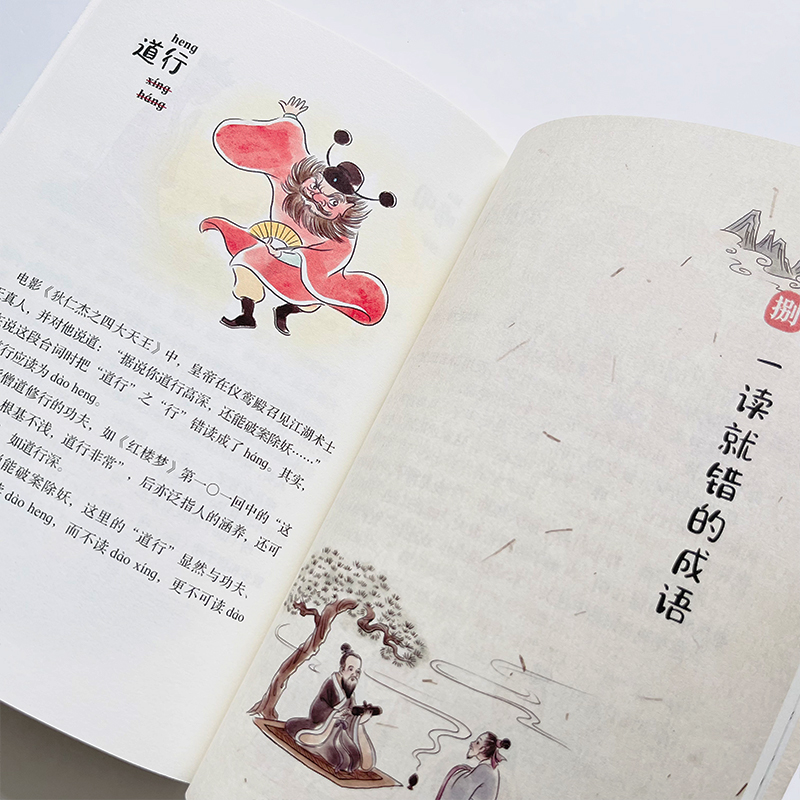 heng
道行
xíng
háng
电影《狄仁杰之四大天王》中，皇帝在仪鸾殿召见江湖术士
真人，并对他说道：“据说你道行高深，还能破案除妖……”
说这段台词时把“道行”之“行”错读成了 háng。其实，
行应读为 dào heng。
僧道修行的功夫，如《红楼梦》第一〇一回中的“这
根基不浅，道行非常”，后亦泛指人的涵养，还可
如道行深。
能破案除妖，这里的“道行”显然与功夫、
dào heng，而不读 dào xíng，更不可读 dào
捌
一读就错的成语